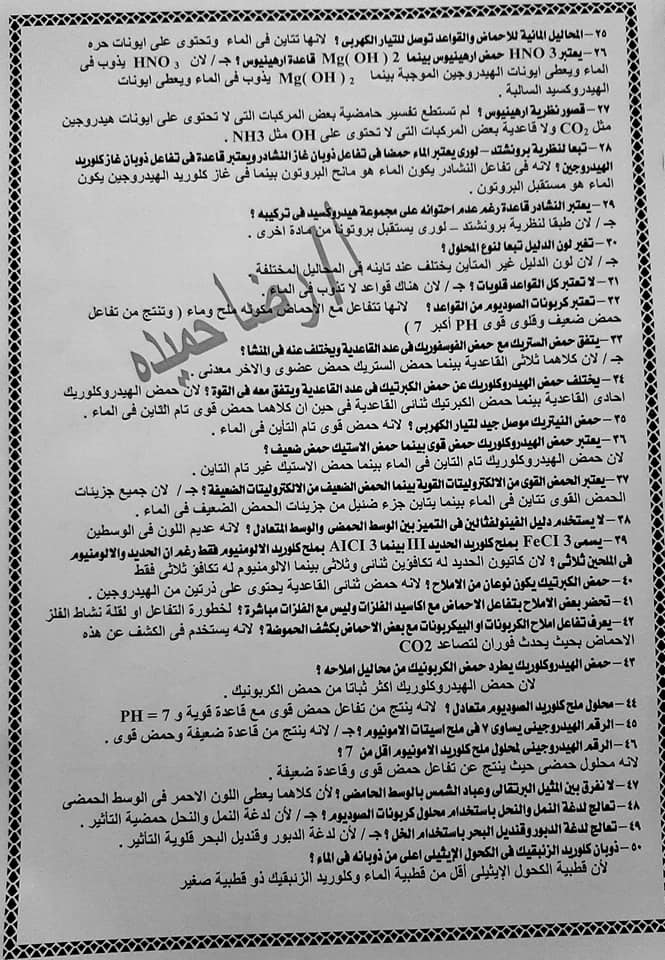 ٢٥ – المحاليل المائية للأحماض والقواعد توصل للتيار الكهربى ؟ لانها تتاين فى الماء وتحتوى على ايونات حره
٢٦ – يعتبر HNO 3 حمض ارهينيوس بينما Mg( OH ) 2 قاعدة ارهينيوس ؟ جـ / لان HNO 3 يذوب فى
الماء ويعطى ايونات الهيدروجين الموجبة بينما Mg( OH ) 2 يذوب فى الماء ويعطى ايونات
الهيدروكسيد السالبة .
٢٧ – قصور نظرية ارهينيوس ؟ لم تستطع تفسير حامضية بعض المركبات التى لا تحتوى على ايونات هيدروجين
مثل CO2 ولا قاعدية بعض المركبات التى لا تحتوى على OH مثل NH3 .
٢٨ – تبعا لنظرية برونشتد – لورى يعتبر الماء حمضا فى تفاعل ذوبان غاز النشادر ويعتبر قاعدة فى تفاعل ذوبان غاز كلوريد
الهيدروجين ؟ لانه فى تفاعل النشادر يكون الماء هو مانح البروتون بينما فى غاز كلوريد الهيدروجين يكون
الماء هو مستقبل البروتون .
٢٩ – يعتبر النشادر قاعدة رغم عدم احتوانه على مجموعة هيدروكسيد فى تركيبه ؟
جـ / لان طبقا لنظرية برونشتد – لورى يستقبل بروتونا من مادة اخرى .
٣٠ – تغير لون الدليل تبعا لنوع المحلول ؟
جـ / لان لون الدليل غير المتأين يختلف عند تاينه فى المحاليل المختلفة .
٣١ – لا تعتبر كل القواعد قلويات ؟ جـ / لان هناك قواعد لا تذوب فى الماء .
٣٢ – تعتبر كربونات الصوديوم من القواعد ؟ لانها تتفاعل مع الاحماض مكونه ملح وماء ( وتنتج من تفاعل
حمض ضعيف وقلوى قوى PH أكبر 7 )
٣٣ – يتفق حمض الستريك مع حمض الفوسفوريك فى عدد القاعدية ويختلف عنه فى المنشا ؟
جـ / لان كلاهما ثلاثى القاعدية بينما حمض الستريك حمض عضوى والاخر معدنى .
٣٤ – يختلف حمض الهيدروكلوريك عن حمض الكبرتيك فى عدد القاعدية ويتفق معه فى القوة ؟ لان حمض الهيدروكلوريك
احادى القاعدية بينما حمض الكبرتيك ثنائى القاعدية فى حين ان كلاهما حمض قوى تام التاين فى الماء .
٣٥ – حمض النيتريك موصل جيد لتيار الكهربى ؟ لانه حمض قوى تام التأين فى الماء .
٣٦ – يعتبر حمض الهيدروكلوريك حمض قوى بينما حمض الاستيك حمض ضعيف ؟
لان حمض الهيدروكلوريك تام التاين فى الماء بينما حمض الاستيك غير تام التاين .
٣٧ – يعتبر الحمض القوى من الالكتروليتات القوية بينما الحمض الضعيف من الالكتروليتات الضعيفة ؟ جـ / لان جميع جزيئات
الحمض القوى تتاين فى الماء بينما يتاين جزء ضئيل من جزيئات الحمض الضعيف فى الماء .
٣٨ – لا يستخدم دليل الفينولفثالين فى التميز بين الوسط الحمضى والوسط المتعادل ؟ لانه عديم اللون فى الوسطين
٣٩ – يسمى FeCI 3 بملح كلوريد الحديد III بينما AICI 3 بملح كلوريد الالومنيوم فقط رغم ان الحديد والالومنيوم
فى الملحين ثلاثى ؟ لان كاتيون الحديد له تكافؤين ثنائى وثلاثى بينما الالومنيوم له تكافؤ ثلاثى فقط
٤٠ – حمض الكبرتيك يكون نوعان من الاملاح ؟ لانه حمض ثنائى القاعدية يحتوى على ذرتين من الهيدروجين .
٤١ – تحضر بعض الاملاح بتفاعل الاحماض مع اكاسيد الفلزات وليس مع الفلزات مباشرة ؟ لخطورة التفاعل او لقلة نشاط الفلز
٤٢ – يعرف تفاعل املاح الكربونات او البيكربونات مع بعض الاحماض بكشف الحموضة ؟ لانه يستخدم فى الكشف عن هذه
الاحماض بحيث يحدث فوران لتصاعد CO2
٤٣ – حمض الهيدروكلوريك يطرد حمض الكربونيك من محاليل املاحه ؟
لان حمض الهيدروكلوريك اكثر ثباتا من حمض الكربونيك .
٤٤ – محلول ملح كلوريد الصوديوم متعادل ؟ لانه ينتج من تفاعل حمض قوى مع قاعدة قوية و PH = 7
٤٥ – الرقم الهيدروجينى يساوى ٧ فى ملح اسيتات الامونيوم ؟ جـ / لانه ينتج من قاعدة ضعيفة وحمض قوى .
٤٦ – الرقم الهيدروجينى لمحلول ملح كلوريد الامونيوم اقل من 7 ؟
لانه محلول حمضى حيث ينتج عن تفاعل حمض قوى وقاعدة ضعيفة .
٤٧ – لا نفرق بين المثيل البرتقالى وعباد الشمس بالوسط الحامضى ؟ لأن كلاهما يعطى اللون الاحمر فى الوسط الحمضى
٤٨ – تعالج لدغة النمل والنحل باستخدام محلول كربونات الصوديوم ؟ جـ / لأن لدغة النمل والنحل حمضية التأثير .
٤٩ – تعالج لدغة الدبور وقنديل البحر باستخدام الخل ؟ جـ / لأن لدغة الدبور وقنديل البحر قلوية التأثير .
٥٠ – ذوبان كلوريد الزئبقيك فى الكحول الإيثيلى اعلى من ذوبانه فى الماء ؟
لأن قطبية الكحول الإيثيلى أقل من قطبية الماء وكلوريد الزئبقيك ذو قطبية صغير
أ / رضا حميده